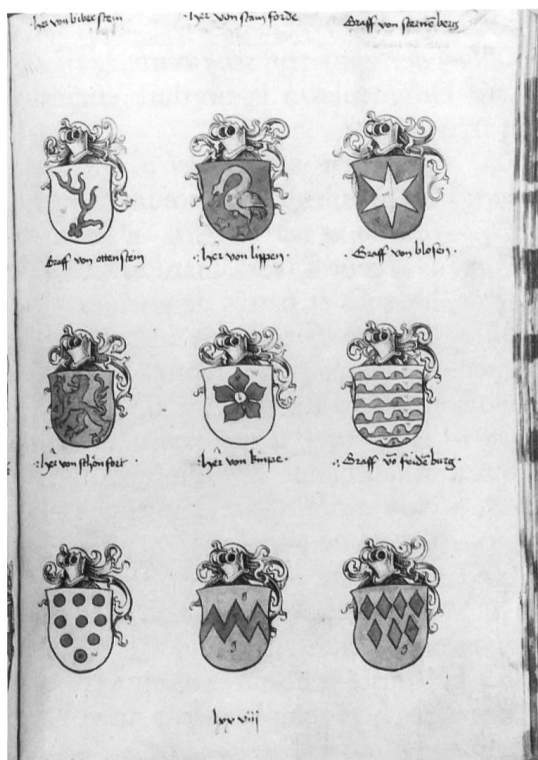 her von biberstein
her von stamforde
Graff von sternēberg
Graff von ottenstein
her von lippen
Graff von blosen
her von schonfort
her von kimpe
Graff vō fridēburg
lxxviii